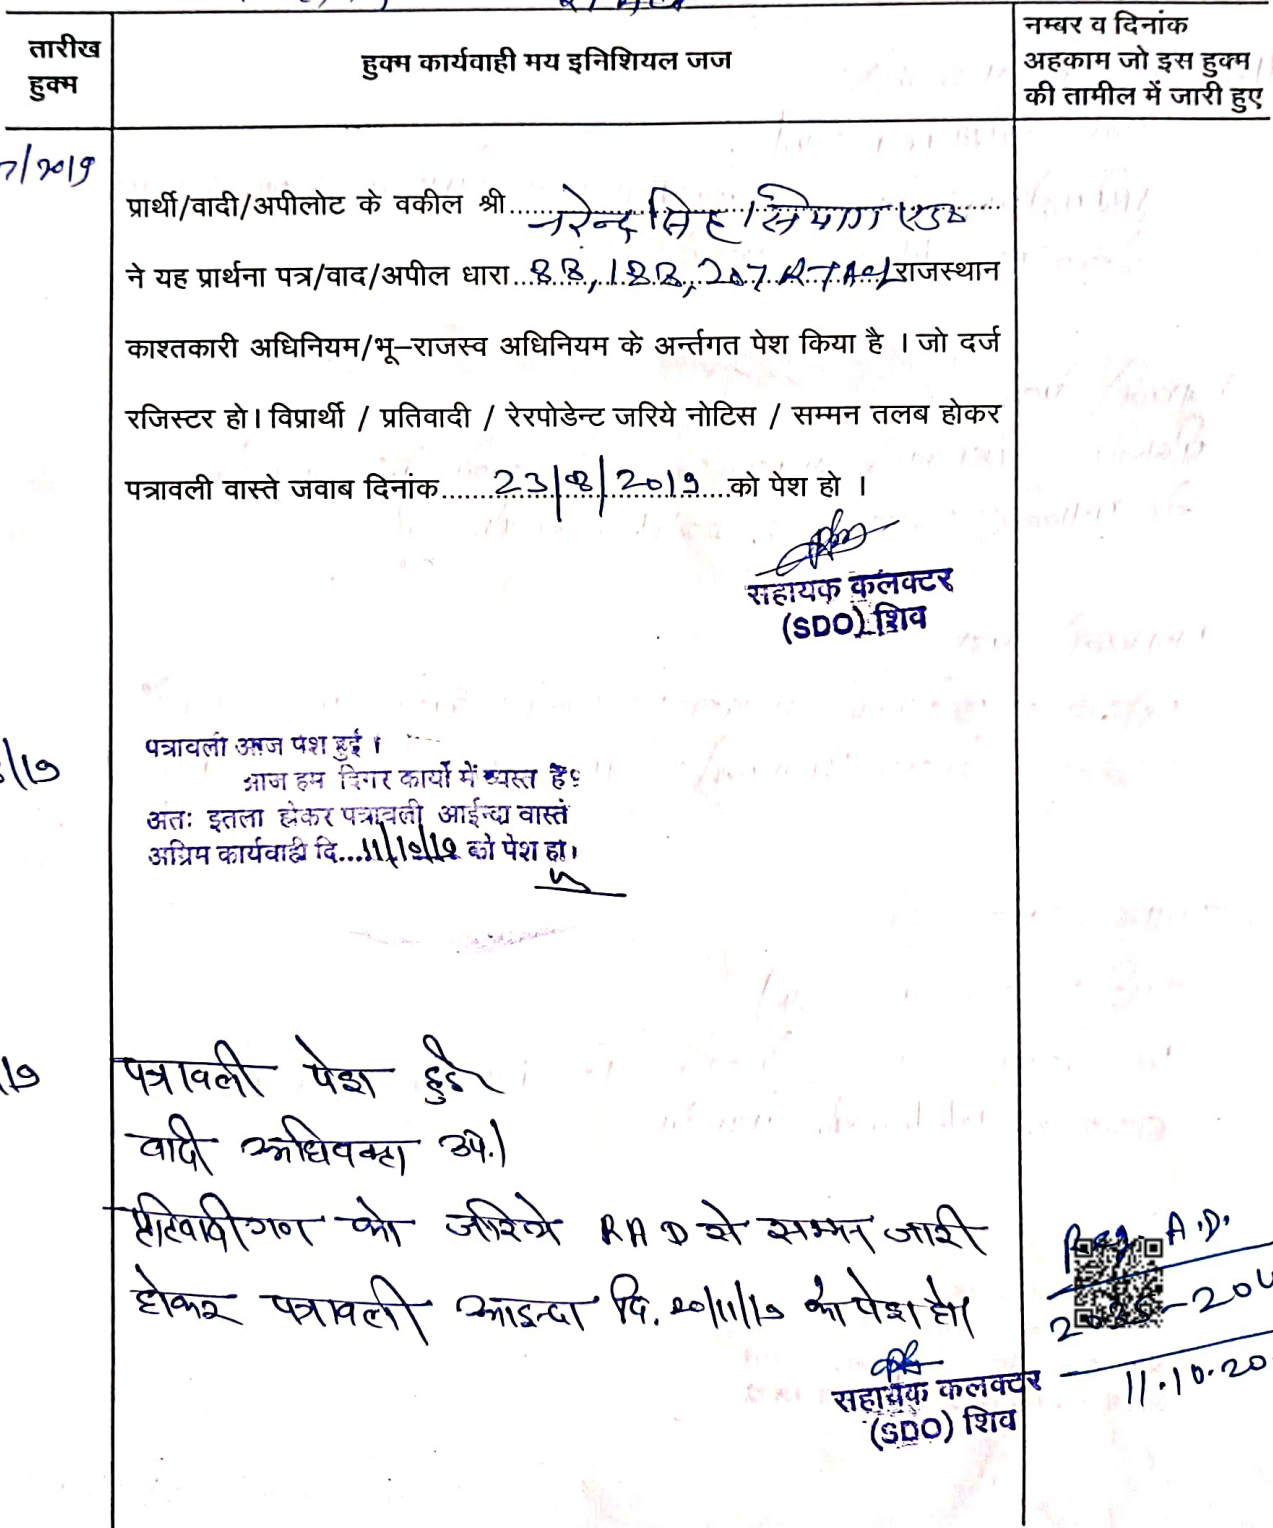 तारीख
हुक्म
हुक्म कार्यवाही मय इनिशियल जज
नम्बर व दिनांक
अहकाम जो इस हुक्म
की तामील में जारी हुए
7/2019
प्रार्थी/वादी/अपीलोट के वकील श्री.....नरेन्द्र सिंह सियाग एडव
ने यह प्रार्थना पत्र/वाद/अपील धारा...88,188,207 RTAct राजस्थान
काश्तकारी अधिनियम/भू–राजस्व अधिनियम के अर्न्तगत पेश किया है । जो दर्ज
रजिस्टर हो। विप्रार्थी / प्रतिवादी / रेरपोडेन्ट जरिये नोटिस / सम्मन तलब होकर
पत्रावली वास्ते जवाब दिनांक.....23/8/2019...को पेश हो ।
सहायक कलक्टर
(SDO) शिव
/19
पत्रावली आज पेश हुई ।
आज हम दिगर कार्यो में व्यस्त है।
अतः इतला होकर पत्रावली आईन्दा वास्ते
अग्रिम कार्यवाही दि...11/10/19 को पेश हो।
/19
पत्रावली पेश हुई
वादी अधिवक्ता उप.।
प्रतिवादीगण को जरिये RAD से सम्मन जारी
होकर पत्रावली आइन्दा दि. 20/11/19 को पेश हो।
Reg. A.D.
11.10.20
सहायक कलक्टर
(SDO) शिव